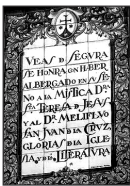 VEAS D SEGVRA
SE HONRA CON HABER
ALBERGADO EN SV SE
NO A LA MISTICA DRA
STA TERESA D JESVS
Y AL DR. MELIFLVO
SAN JVAN D LA CRVZ
GLORIAS D LA IGLE
SIA, Y D LA LITERATVRA